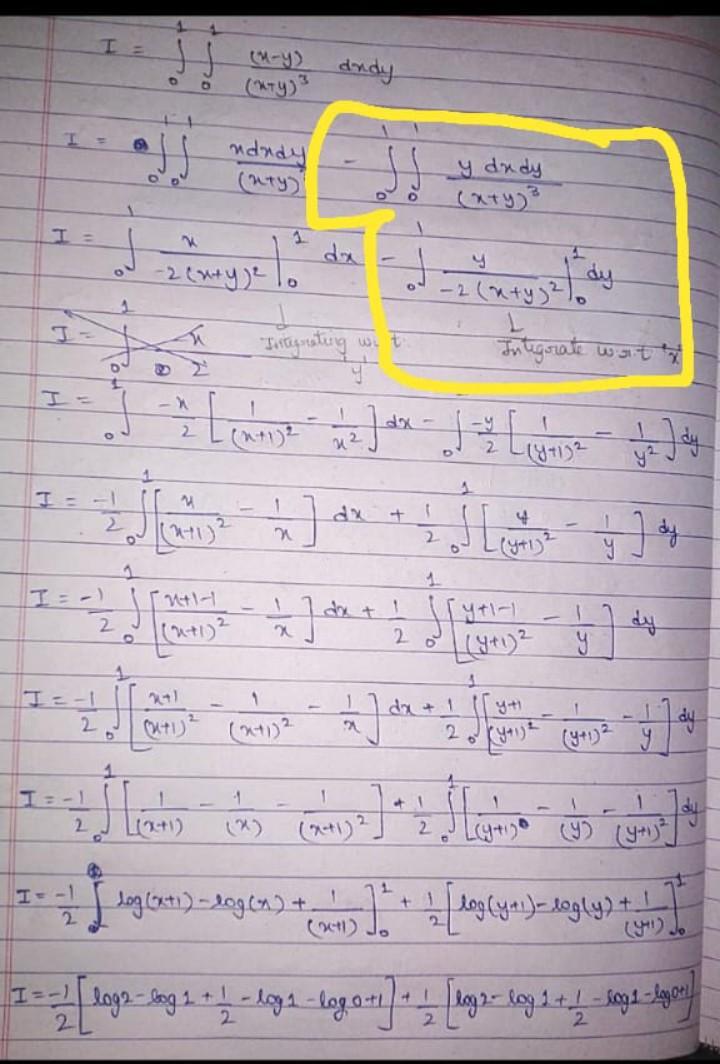 I = ∫₀¹ ∫₀¹ (x-y)/(x+y)³ dxdy
I = ∫₀¹ ∫₀¹ xdxdy/(x+y) - ∫₀¹ ∫₀¹ y dxdy/(x+y)³
I = ∫₀¹ x/(-2(x+y)²) |₀¹ dx - ∫₀¹ y/(-2(x+y)²) |₀¹ dy
↓ Integrating w.r.t 'y' ↓ Integrate w.r.t 'x'
I = ∫₀¹ -x/2 [1/(x+1)² - 1/x²] dx - ∫₀ -y/2 [1/(y+1)² - 1/y²] dy
I = -1/2 ∫₀¹ [x/(x+1)² - 1/x] dx + 1/2 ∫₀¹ [y/(y+1)² - 1/y] dy
I = -1/2 ∫₀¹ [x+1-1/(x+1)² - 1/x] dx + 1/2 ∫₀¹ [y+1-1/(y+1)² - 1/y] dy
I = -1/2 ∫₀¹ [x+1/(x+1)² - 1/(x+1)² - 1/x] dx + 1/2 ∫₀¹ [y+1/(y+1)² - 1/(y+1)² - 1/y] dy
I = -1/2 ∫₀¹ [1/(x+1) - 1/(x) - 1/(x+1)²] + 1/2 ∫₀¹ [1/(y+1) - 1/(y) - 1/(y+1)²] dy
I = -1/2 [log(x+1) - log(x) + 1/(x+1)]₀¹ + 1/2 [log(y+1) - log(y) + 1/(y+1)]₀¹
I = -1/2 [log2 - log 1 + 1/2 - log1 - log0 + 1] + 1/2 [log2 - log 1 + 1/2 - log1 - log0+1]